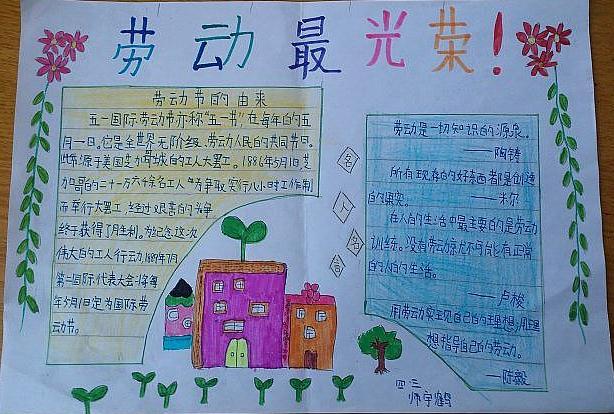 劳动最光荣!
劳动节的由来
五一国际劳动节亦称"五一节",在每年的五
月一日。它是全世界无阶级、劳动人民的共同节日。
此节源于美国芝加哥城的工人大罢工。1886年5月1日,芝
加哥的二十一万六千余名工人为争取实行八小时工作制
而举行大罢工,经过艰苦的斗争
终于获得了胜利。为纪念这次
伟大的工人行动,1889年7月,
第二国际代表大会
年5月1日定为国际劳
动节。
名
人
名
言
劳动是一切知识的源泉。
——陶铸
所有现存的好东西都是创造
的果实。——米尔
在人的生活中最主要的是劳动
训练。没有劳动就不可能有正常
的人的生活。
——卢梭
用劳动实现自己的理想,用理
想指导自己的劳动。
——陈毅
四·三
师宇鹤